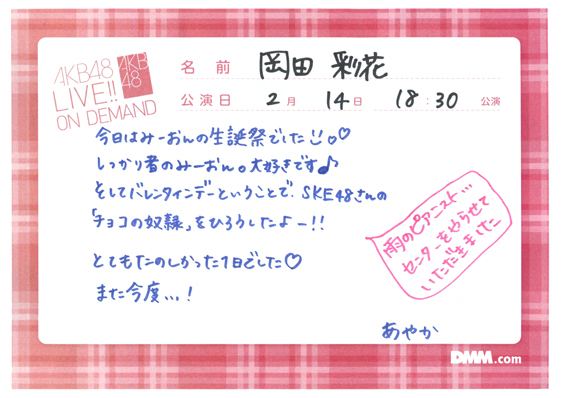 AKB48
LIVE!!
ON DEMAND
AKB
48
名前 岡田 彩花
公演日 2月 14日 18:30 公演
今日はみーおんの生誕祭でした。♡
しっかり者のみーおん。大好きです♪
そしてバレンタインデーということで、SKE48さんの
「チョコの奴隷」をひろうしたよー!!
とてもたのしかった1日でした♡
また今度...!
雨のピアニスト...
センターをやらせて
いただきました
あやか
DMM.com